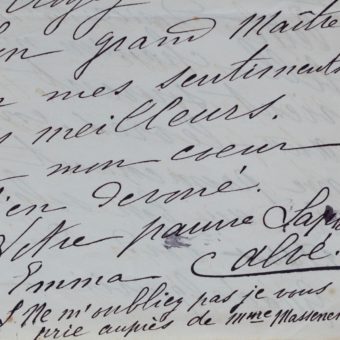 grand Maître
mes sentiments
meilleurs.
mon coeur
devoué.
Votre pauvre Sapho
Emma Calvé.
Ne m'oubliez pas je vous
prie auprès de Mme Massenet